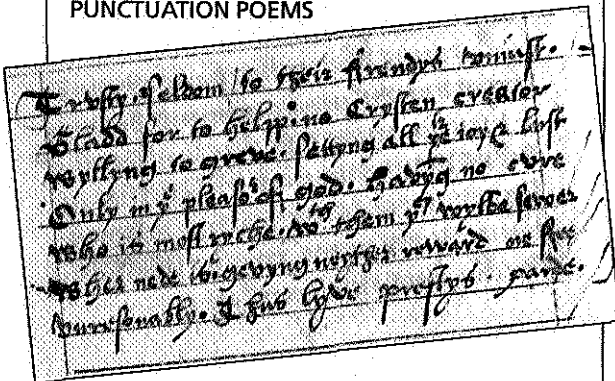 PUNCTUATION POEMS
Trusty. seldom / to their frendys vniust. /
Gladd for to helpp. no Crysten creator
Wyllyng to greve. settyng all yͤ ioye & lust
Only in yͤ pleasͬ of god. havyng no cure
Who is most ryche. wͭʰ them yͭ wylbe sewer
Wher nede is. gevyng neyther reward ne fee
Vnresonably. Thus lyve prestys. parde.